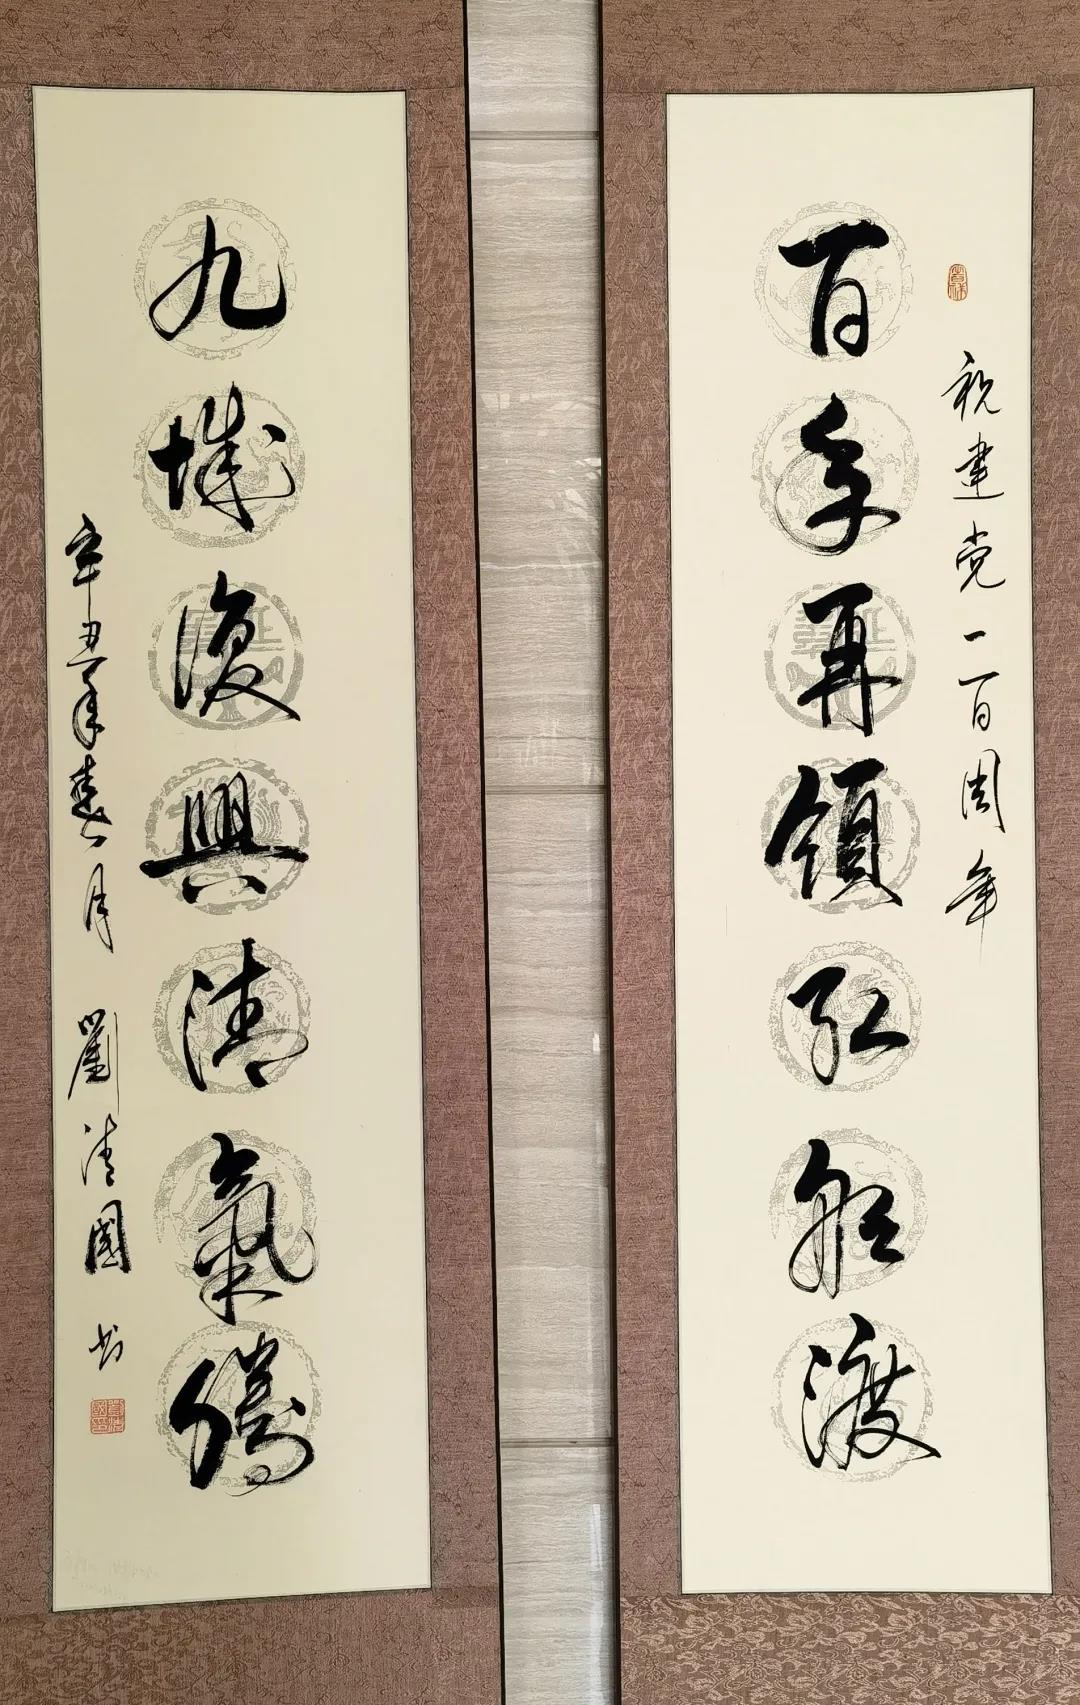 祝建党一百周年
百年再领红船渡
九域復興清氣騰
辛丑年春月 劉清國书